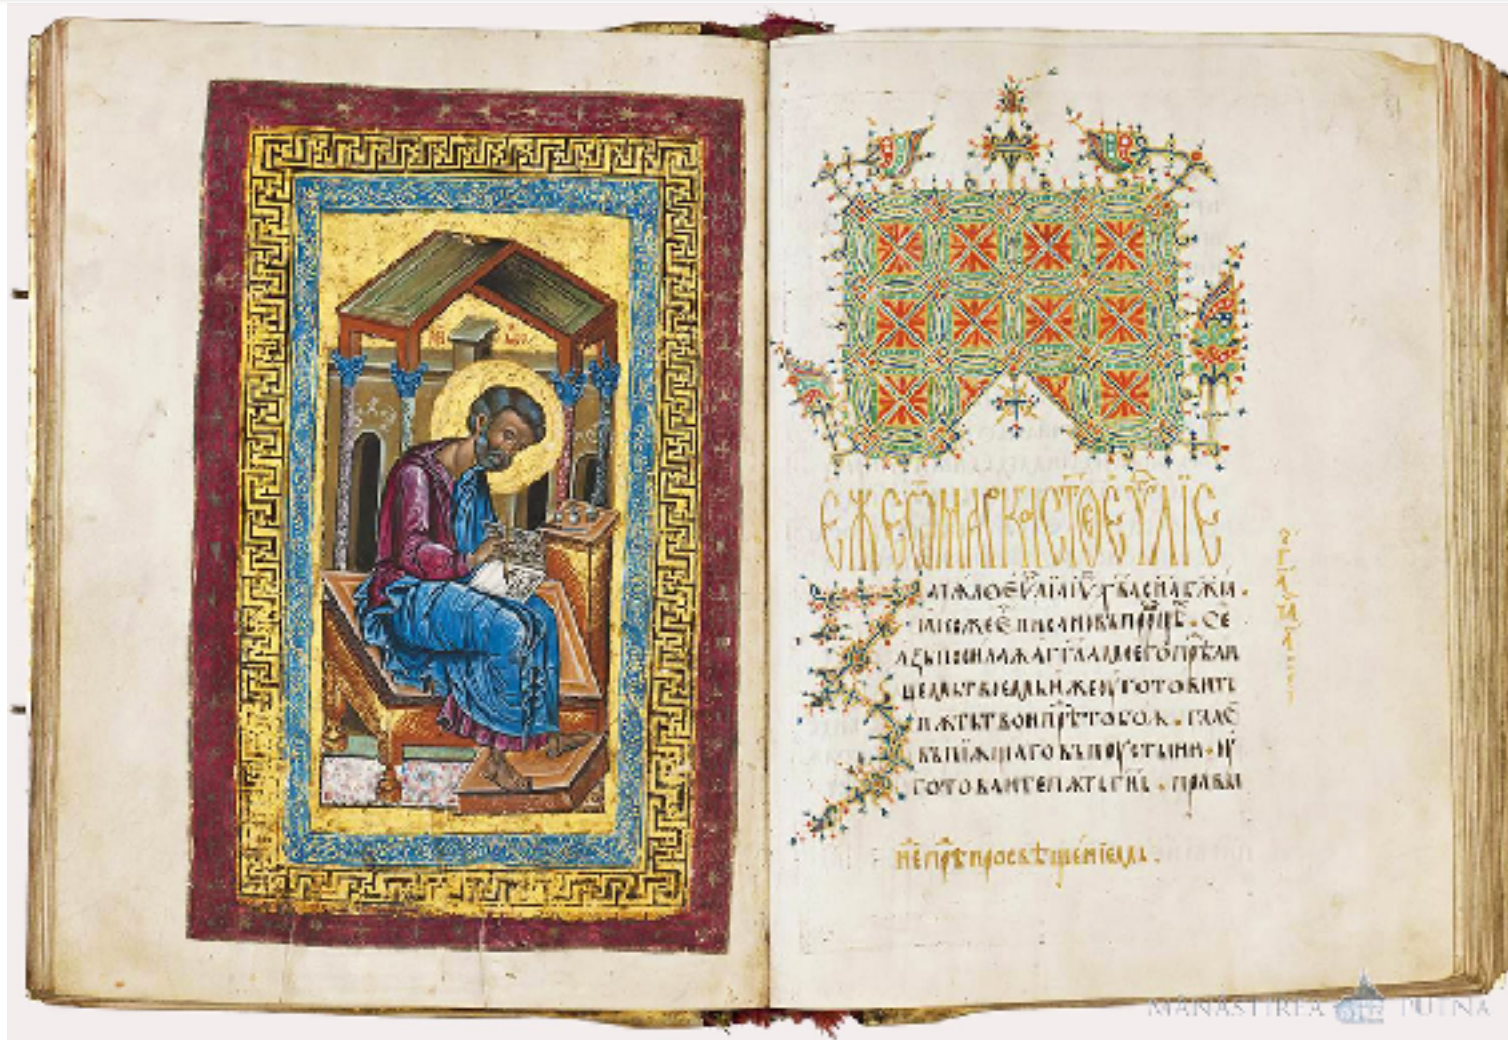 ЕЖЕ Ѿ МАРКА СТОЕ ЕѴЛІЕ
ЗАЧѦЛО ЕѴЛІА ІѴ ХВА СНА БЖИ.
ІАКОЖЕ Е ПИСАНО ВЪ ПРРЦѢ. СЕ
АЗЬ ПОСИЛАѪ АГГЛА МОЕГО ПРѢ ЛИ
ЦЕМЬ ТВОЕМЬ ИЖЕ ОУГОТОВИТЬ
ПѪТЬ ТВОИ ПРѢ ТОБОѪ. ГЛАС
ВЪПІѪЩАГО ВЪ ПОУСТЫНИ. ОУ
ГОТОВАИТЕ ПѪТЬ ГНЬ. ПРАВЫ
НЕ ПРѢ ПРОСВѢЩЕНІЕМЬ.
MĂNĂSTIREA PUTNA